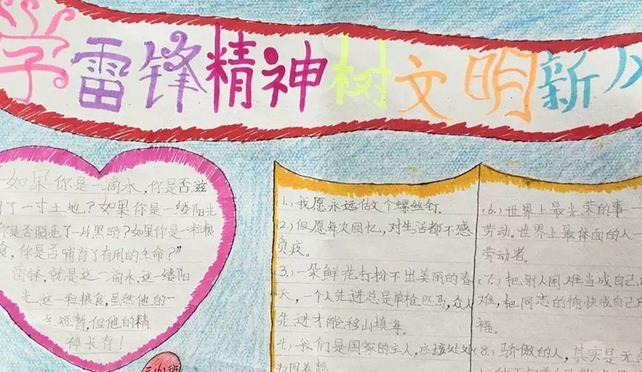 学雷锋精神树文明新
如果你是一滴水,你是否滋
了一寸土地?如果你是一缕阳光
你是否照亮了一片黑暗?如果你是一粒粮
食,你是否哺育了有用的生命?"
雷锋,就是这一滴水,这一缕阳
光,这一粒粮食,虽然他的一
生短暂,但他的精
神长存!
(1)、我愿永远做个螺丝钉.
(2)、但愿每次回忆,对生活都不感
负疚。
(3)、一朵鲜花打扮不出美丽的春
天,一个人先进总是单枪匹马,众人
先进才能移山填海。
我们是国家的主人,应该处处
(6)、世界上最光荣的事一
劳动。世界上最体面的人一
劳动者。
(7)、把别人困难当成自己
难,把同志的愉快成自己
福。
(8)、骄傲的人,其实是无